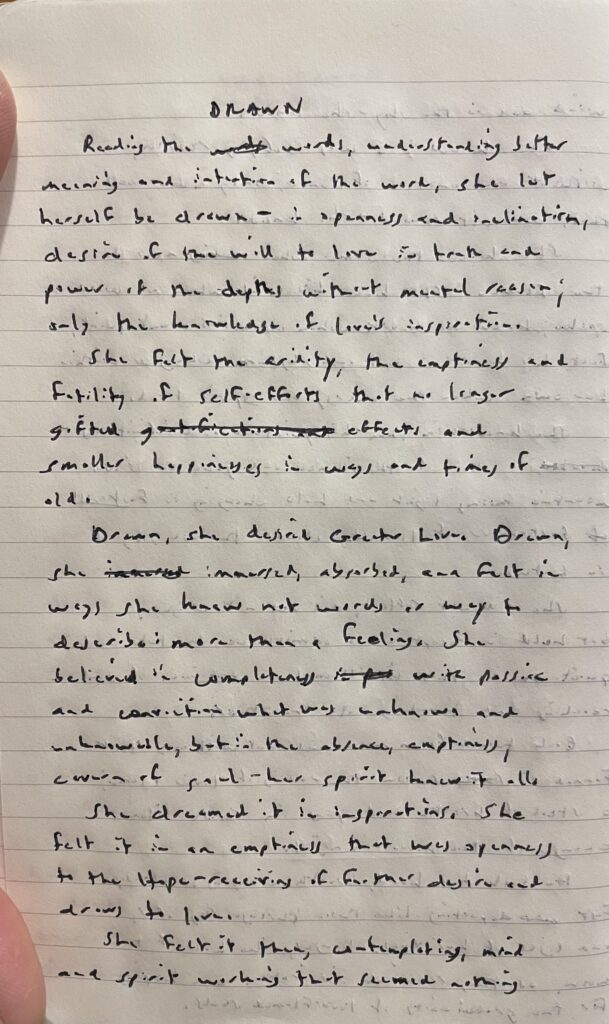 DRAWN
Reading the words, understanding better
meaning and intention of the word, she let
herself be drawn - in openness and inclination,
desire of the will to love in truth and
power of the depths without mental reason;
only the knowledge of love's inspiration.
She felt the aridity, the emptiness and
futility of self-efforts that no longer
gifted effects and
smaller happinesses in ways and times of
old.
Drawn, she desired Greater Love. Drawn,
she immersed, absorbed, and felt in
ways she knew not words or way to
describe: more than a feeling. She
believed in completeness with passion
and conviction what was unknown and
unknowable, but in the absence, emptiness,
cavern of soul - her spirit knew it all.
She dreamed it in inspirations. She
felt it in an emptiness that was openness
to the Hope-receiving of further desire and
draws to love.
She felt it then, contemplating, mind
and spirit working that seemed nothing